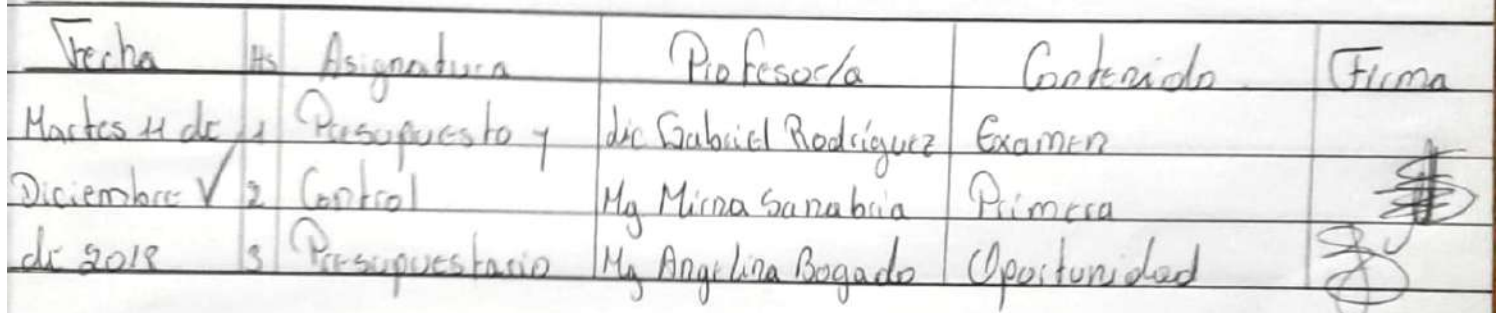 Fecha Hs Asignatura Profesor/a Contenido Firma
Martes 11 de 1 Presupuesto y Lic Gabriel Rodríguez Examen
Diciembre 2 Control Mg Mirna Sanabria Primera
de 2018 3 Presupuestario Mg Angelina Bogado Oportunidad